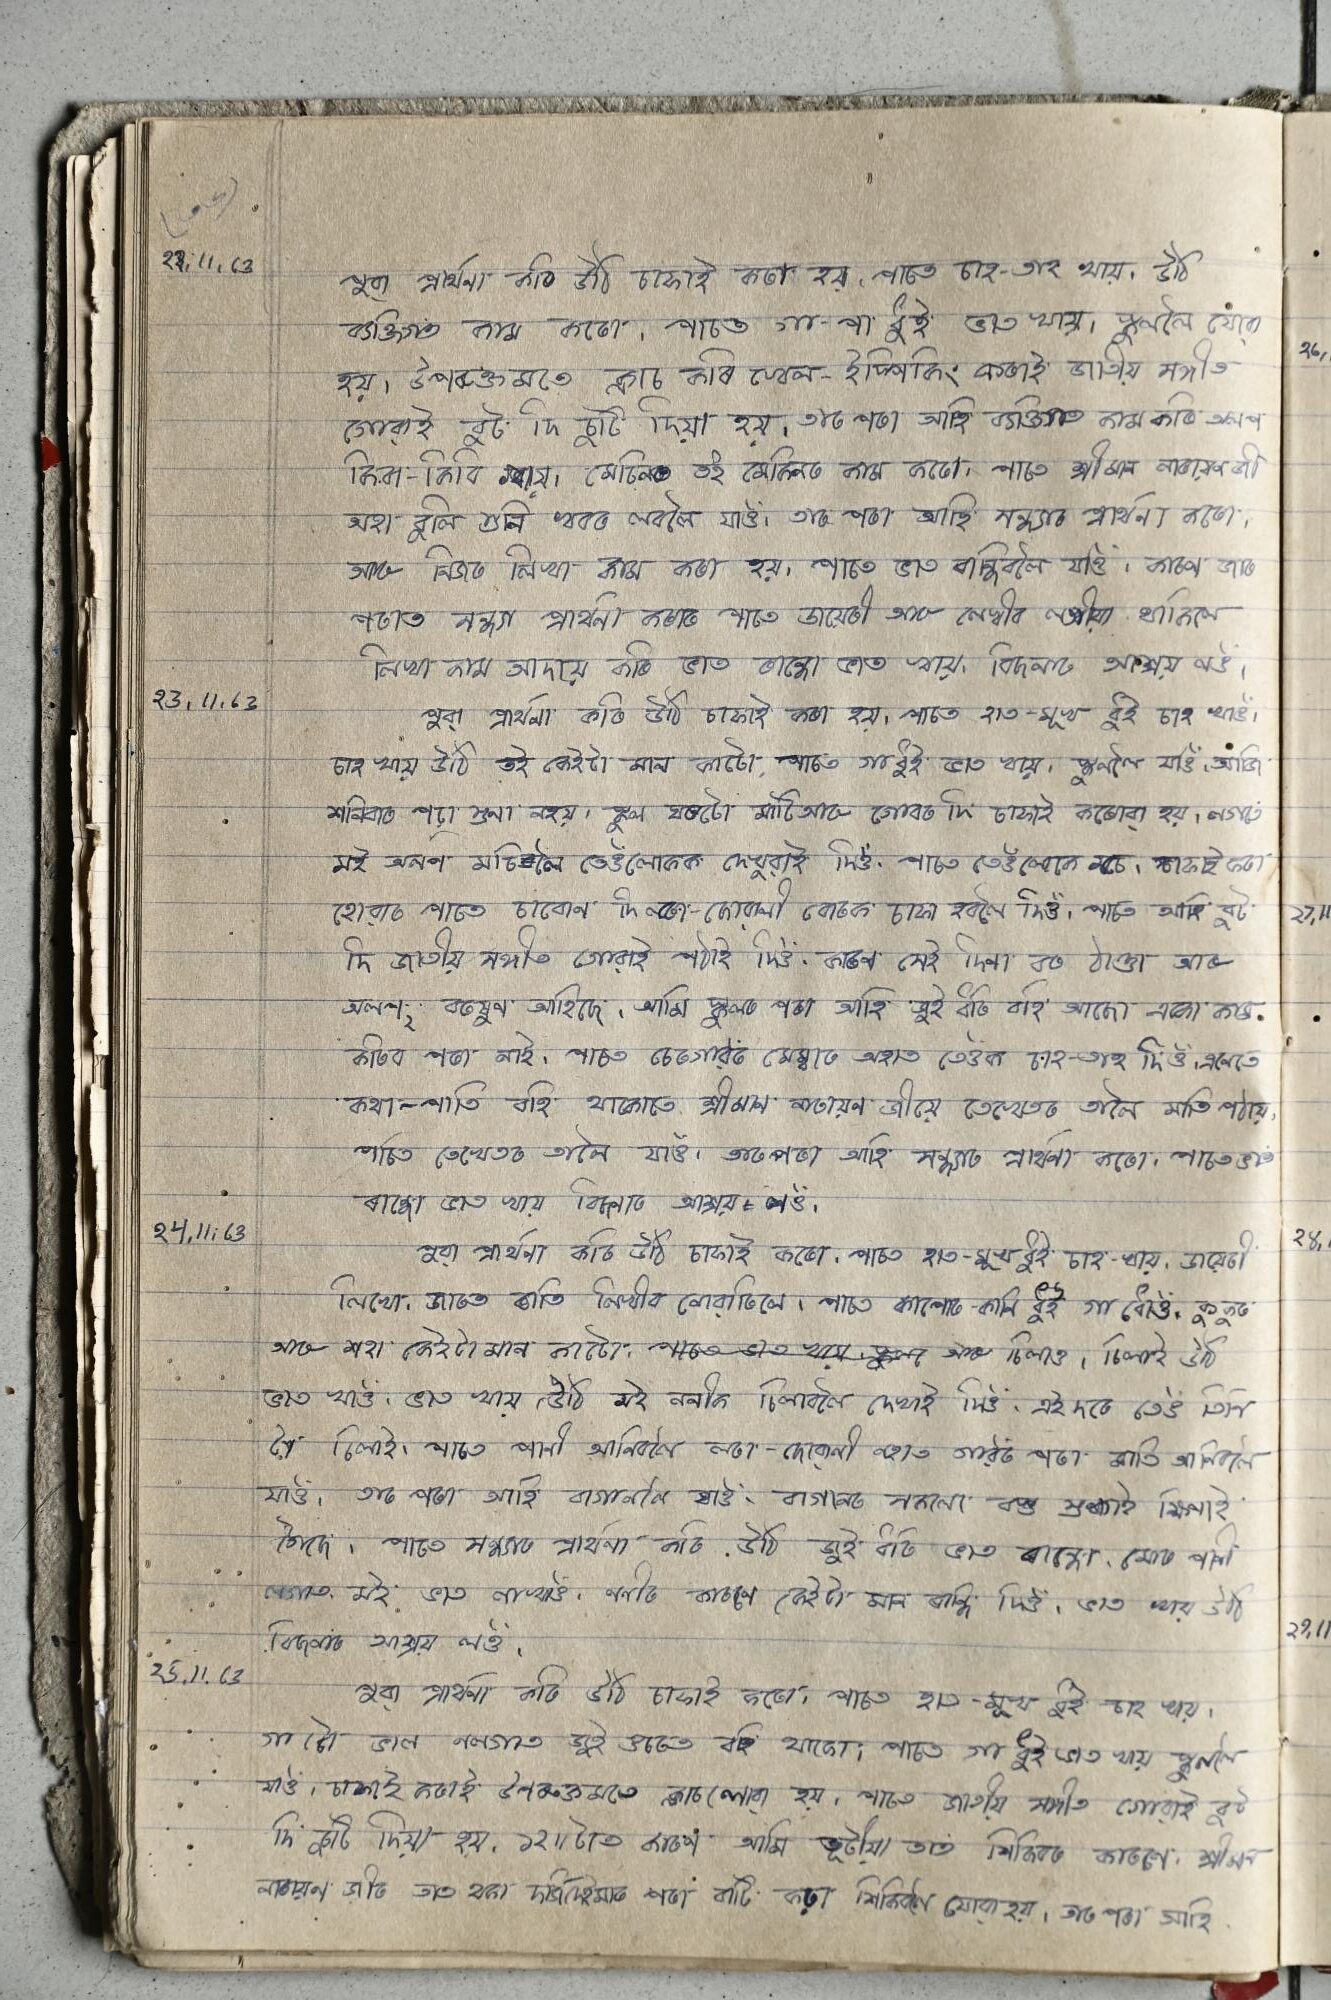 22.11.63
পুৱা প্ৰাৰ্থনা কৰি উঠি চাফাই কৰা হয়, পাচত চাহ-তাহ খায়, উঠি
ব্যক্তিগত কাম কৰো, পাচত গা-পা ধুই ভাত খায়, স্কুললৈ যোৱা
হয়, উপৰুক্তমতে ক্লাচ কৰি খেল- কৰাই জাতীয় সঙ্গীত
গোৱাই বুট দি চুটি দিয়া হয়, তাৰ পৰা আহি ব্যক্তিগত কাম কৰি অলপ
কিবা-কিবি খায়, কাম কৰো, পাচত শ্ৰীমান নাৰায়ণ জী
অহা বুলি শুনি খবৰ লবলৈ যাওঁ, তাৰ পৰা আহি সন্ধ্যাৰ প্ৰাৰ্থনা কৰো,
আৰু নিজৰ লিখা কাম কৰা হয়, পাচত ভাত ৰান্ধিবলৈ যাওঁ, কাৰণ জাৰ
পৰাত সন্ধ্যা প্ৰাৰ্থনা কৰাৰ পাচত ডায়েৰী আৰু লেখীব লগীয়া থাকিলে
লিখা কাম আদায় কৰি ভাত ৰান্ধো ভাত খায়, বিছনাত আশ্ৰয় লওঁ,
23.11.63
পুৱা প্ৰাৰ্থনা কৰি উঠি চাফাই কৰা হয়, পাচত হাত-মুখ ধুই চাহ খাওঁ,
চাহ খায় উঠি কেইটা মান কাটো, পাচত গা ধুই ভাত খায়, স্কুললৈ যাওঁ, আজি
শনিবাৰ পঢ়া শুনা নহয়, স্কুল ঘৰটো মাটি আৰু গোবৰ দি চাফাই কৰোৱা হয়, লগতে
মই অলপ মচিবলৈ তেওঁলোকক দেখুৱাই দিওঁ, পাচত তেওঁলোকে মচে, চাফাই কৰা
হোৱাৰ পাচত চাবোন দি লৰা-ছোৱালী বোৰক চাফা হবলৈ দিওঁ, পাচত আহি বুট
দি জাতীয় সঙ্গীত গোৱাই পঠাই দিওঁ, কাৰণ সেই দিনা বৰ ঠাণ্ডা আৰু
অলপ, বৰষুণ আহিছে, আমি স্কুলৰ পৰা আহি জুই ধৰি বহি আছো একো কাম
কৰিব পৰা নাই, পাচত মেম্বাৰ অহাত তেওঁক চাহ-তাহ দিওঁ, এনেতে
কথা-পাতি বহি থাকোতে শ্ৰীমান নাৰায়ন জীয়ে তেখেতৰ তালৈ মাতি পঠায়,
পাচত তেখেতৰ তালৈ যাওঁ, তাৰ পৰা আহি সন্ধ্যাৰ প্ৰাৰ্থনা কৰো, পাচত ভাত
ৰান্ধো ভাত খায় বিছনাত আশ্ৰয় লওঁ,
24.11.63
পুৱা প্ৰাৰ্থনা কৰি উঠি চাফাই কৰো, পাচত হাত-মুখ ধুই চাহ-খায়, ডায়েৰী
লিখো, জাৰত ৰাতি লিখীব নোৱাৰিলে, পাচত কাপোৰ-কানি ধুই গা ধোওঁ, কুকুৰ
আৰু শহা কেইটা মান কাটো, পাচত ভাত খায়, স্কুল আৰু চিলাও, চিলাই উঠি
ভাত খাওঁ, ভাত খায় উঠি মই ননীক চিলাবলৈ দেখাই দিওঁ, এইদৰে তেওঁ তিনি
চিলাই, পাচত পানী আনিবলৈ লৰা-ছোৱালী নহাত গাৱঁৰ পৰা মাতি আনিবলৈ
যাওঁ, তাৰ পৰা আহি বাগানলৈ যাওঁ, বাগানৰ সকলো বস্তু
গৈছে, পাচত সন্ধ্যাৰ প্ৰাৰ্থনা কৰি উঠি জুই ধৰি ভাত ৰান্ধো, মোৰ
মই ভাত নাখাওঁ, ননীৰ কাৰণে কেইটা মান ৰান্ধি দিওঁ, ভাত খায় উঠি
বিছনাত আশ্ৰয় লওঁ,
25.11.63
পুৱা প্ৰাৰ্থনা কৰি উঠি চাফাই কৰো, পাচত হাত-মুখ ধুই চাহ খায়,
গা টো ভাল নলগাত জুই ওচৰত বহি থাকো, পাচত গা ধুই ভাত খায় স্কুললৈ
যাওঁ, চাফাই কৰাই উপৰুক্তমতে ক্লাচ লোৱা হয়, পাচত জাতীয় সঙ্গীত গোৱাই বুট
দি চুটি দিয়া হয়, ১২॥ টাত কাৰণ আমি তাত শিকিবৰ কাৰণে, শ্ৰীমান
নাৰায়ন জীৰ তাত থকা পৰা শিকিবলৈ যোৱা হয়, তাৰ পৰা আহি